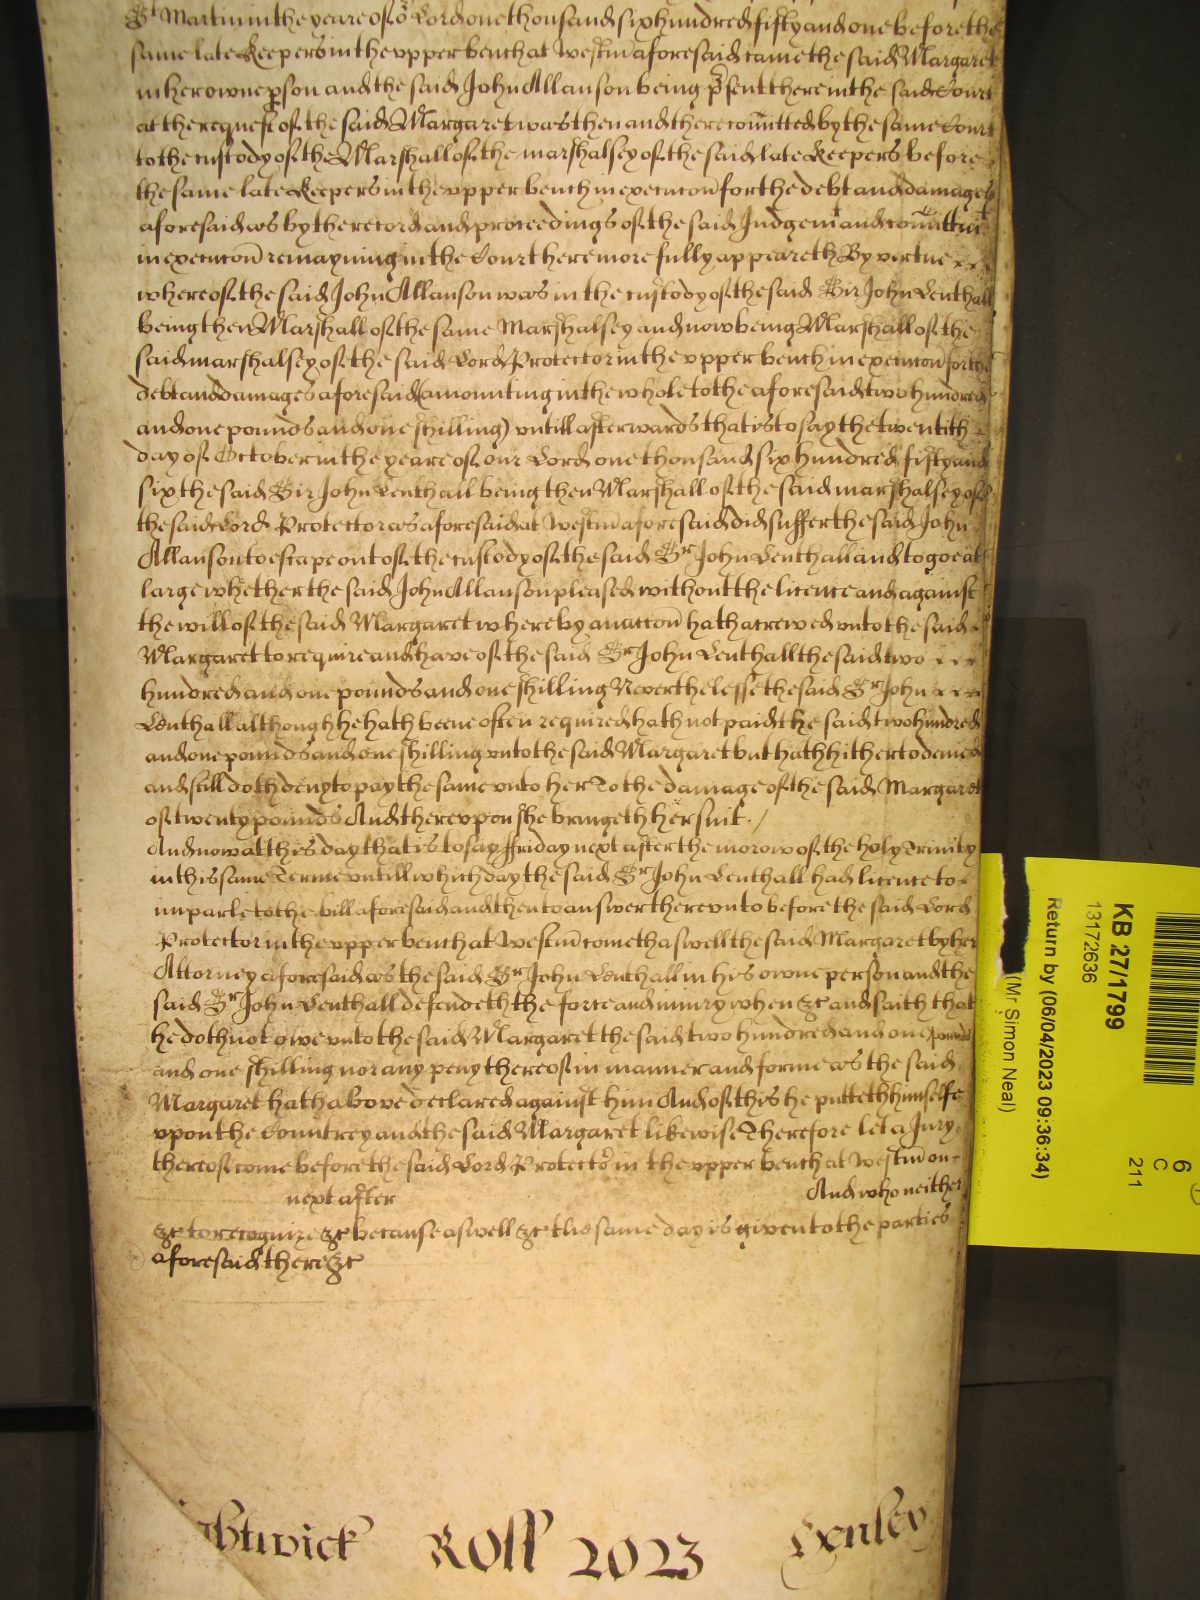 St Martin in the yeare of or Lord one thousand six hundred fifty and one before the
same late Keepers in the vpper bench at Westm aforesaid came the said Margaret
in her owne pson and the said John Allanson being psent there in the said Court
at the request of the said Margaret was then and there comitted by the same Court
to the custody of the Marshall of the marshalsey of the said late Keepers before
the same late Keepers in the vpper bench in execucon for the debt and damages
aforesaid as by the record and proceedings of the said Judgemt and comittmt
in execucon remayning in the Court here more fully appeareth By vertue
whereof the said John Allanson was in the custody of the said Sir John Lenthall
being then Marshall of the same Marshalsey and now being Marshall of the
said marshalsey of the said Lord Protector in the vpper bench in execucon for the
debt and damages aforesaid (amounting in the whole to the aforesaid two hundred
and one pounds and one shilling) vntill afterwards that is to say the twentith
day of October in the yeare of our Lord one thousand six hundred fifty and
six the said Sir John Lenthall being then Marshall of the said marshalsey of
the said Lord Protector as aforesaid at Westm aforesaid did suffer the said John
Allanson to escape out of the custody of the said Sr John Lenthall and to goe at
large whether the said John Allanson pleased without the licence and against
the will of the said Margaret whereby an accon hath acrewed vnto the said
Margaret to require and have of the said Sr John Lenthall the said two
hundred and one pounds and one shilling Neverthelesse the said Sr John
Lenthall although he hath beene often required hath not paid the said two hundred
and one pounds and one shilling vnto the said Margaret but hath hitherto denied
and still doth deny to pay the same vnto her To the damage of the said Margaret
of twenty pounds And therevpon she bringeth her suit. /
And now at this day that is to say ffriday next after the morow of the holy Trinity
in this same Terme vntill which day the said Sr John Lenthall had licence to
imparle to the bill aforesaid and then to answer therevnto before the said Lord
Protector in the vpper bench at Westm cometh aswell the said Margaret by her
Attorney aforesaid as the said Sr John Lenthall in his owne person and the
said Sr John Lenthall defendeth the force and iniury when &c and saith that
he doth not owe vnto the said Margaret the said two hundred and one pounds
and one shilling nor any peny thereof in manner and forme as the said
Margaret hath above declared against him And of this he putteth himselfe
vpon the Countrey and the said Margaret likewise Therefore let a Jury
thereof come before the said Lord Protector in the vpper bench at Westm on
next after And who neither
&c to recognize &c because aswell &c the same day is given to the parties
aforesaid there &c
htwick Roll 2023 Exnley
KB 27/1799
13172636
Return by (06/04/2023 09:36:34)
(Mr Simon Neal)
6
C
211